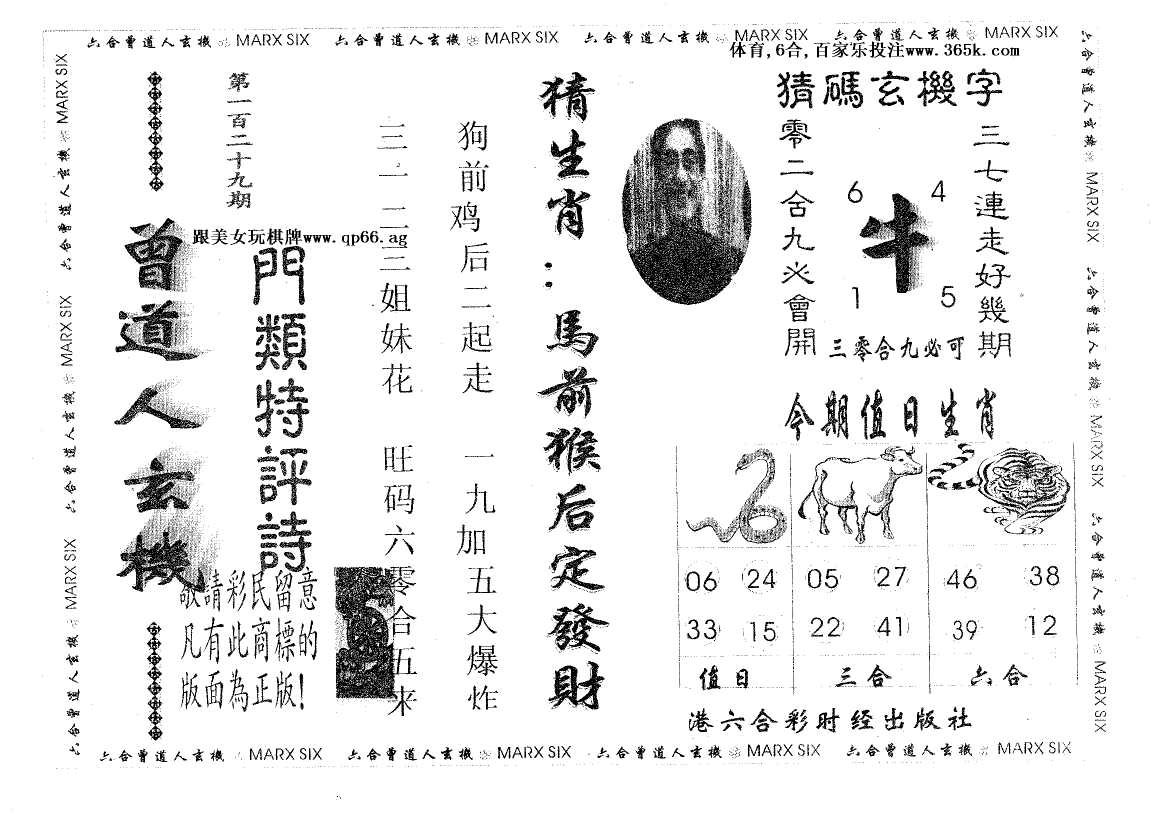 六合曾道人玄機 MARX SIX 六合曾道人玄機 MARX SIX 六合曾道人玄機 MARX SIX 六合曾道人玄機 MARX SIX
体育,6合,百家乐投注www.365k.com
猜碼玄機字
三七連走好幾期
6 4
牛
1 5
零二舍九必會開
三零合九必可
今期值日生肖
06 24 05 27 46 38
33 15 22 41 39 12
值日 三合 六合
港六合彩时经出版社
猜生肖:馬前猴后定發財
狗前鸡后二起走 一九加五大爆炸
三一二三姐妹花 旺码六零合五来
第一百二十九期
跟美女玩棋牌www.qp66.ag
門類特評詩
曾道人玄機
敬請彩民留意
凡有此商標的
版面為正版!
六合曾道人玄機 MARX SIX
六合曾道人玄機 MARX SIX
六合曾道人玄機 MARX SIX
六合曾道人玄機 MARX SIX
六合曾道人玄機 MARX SIX
六合曾道人玄機 MARX SIX
六合曾道人玄機 MARX SIX 六合曾道人玄機 MARX SIX 六合曾道人玄機 MARX SIX 六合曾道人玄機 MARX SIX